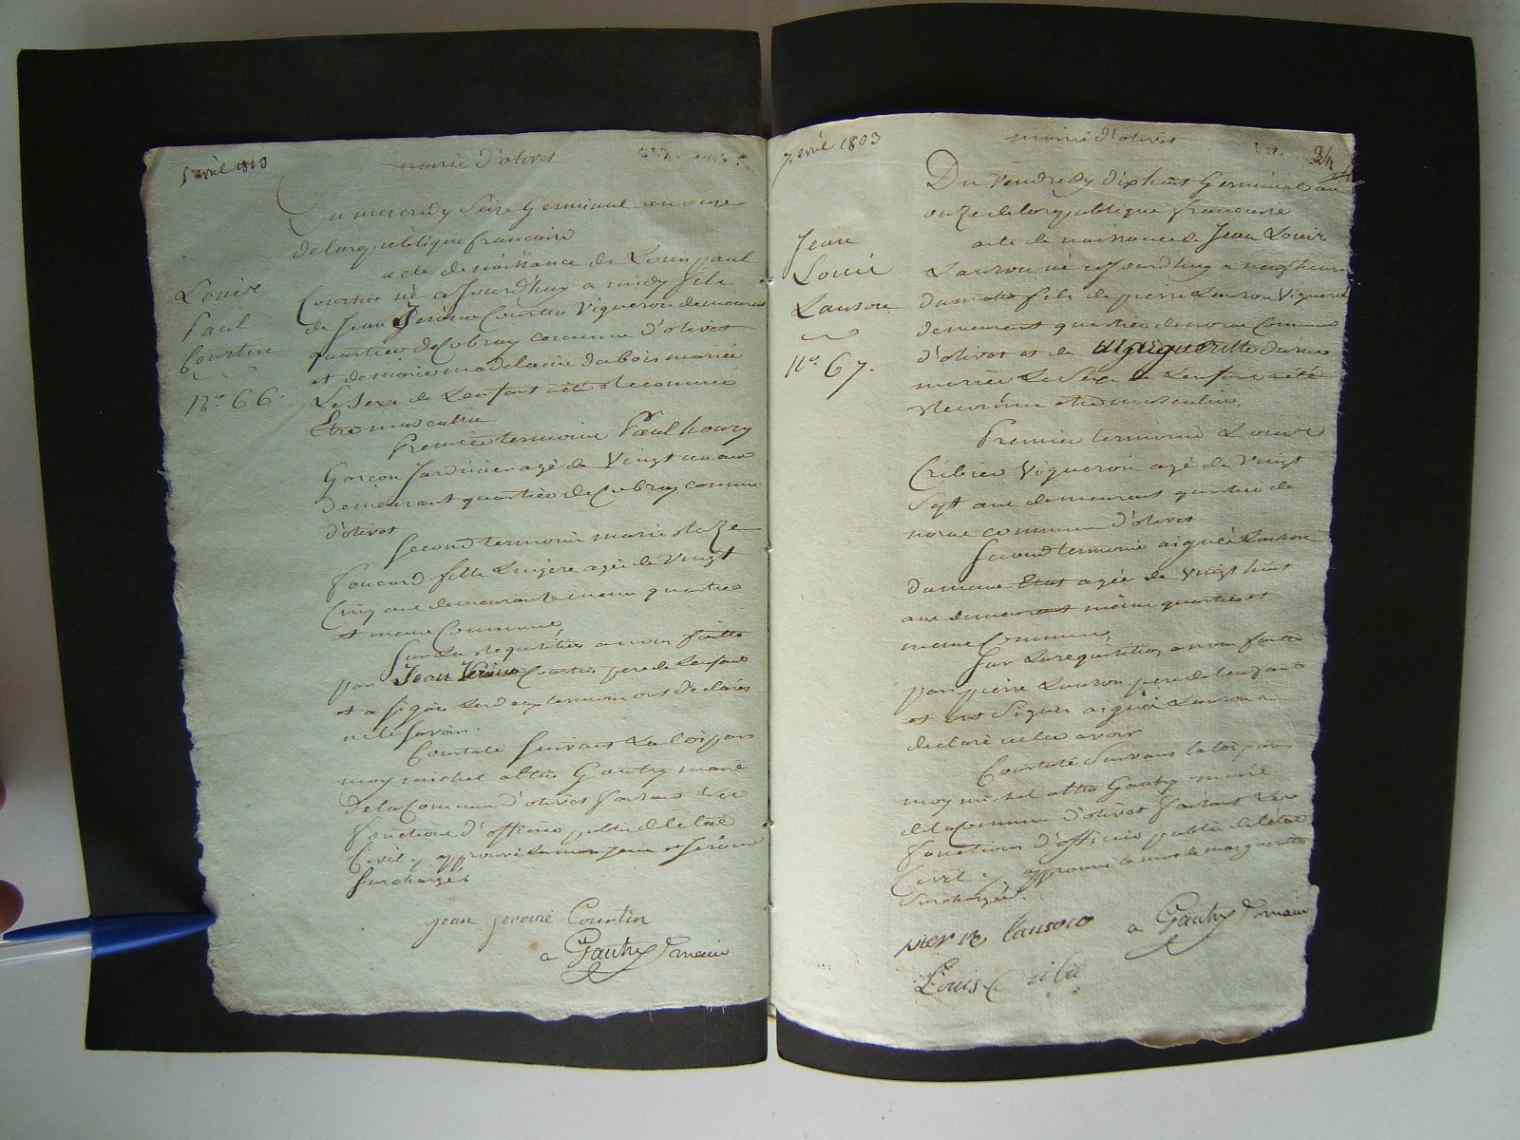 mairie d'olivet
Du mercredy Seize Germinal an onze
de la republique francaise
acte de naissance de Louis paul
Courtin né cejourd'huy a midy fils
de Jean Courtin Vigneron demeurant
quartier de Cubray commune d'olivet
et de marie madelaine dubois mariés
Le Sexe de Lenfant a été reconnu
Etre masculin
Louis
Paul
Courtin
N° 66.
Premier temoin Paul houry
Garçon Jardinier agé de Vingt un ans
demeurant quartier de Cubray commune
d'olivet
Second temoin marie
fille Lingere agée de Vingt
Cinq ans demeurante meme quartier
et meme Commune,
Sur La requisition a nous faitte
par Jean Courtin pere de Lenfant
et a signé Les deux temoins ont declarés
ne le savoir.
Constaté Suivant La loi par
moy michel Gautry maire
De la Commune d'olivet faisant les
fonctions d'officier public de letat
Civil, approuvé Le mot jean
Surchargés
jean Courtin
Gautry maire
7 avril 1803
mairie d'olivet
24
Du Vendredy dix huit Germinal an
onze de la republique francaise
acte de naissance de Jean Louis
Lauson né cejourd'huy a neuf heures
du matin fils de pierre Lauson Vigneron
demeurant quartier de commune
d'olivet et de
mariés Le Sexe de Lenfant a été
reconnu etre masculin.
Jean
Louis
Lauson
N° 67.
Premier temoin Louis
Vigneron agé de Vingt
Sept ans demeurant quartier de
commune d'olivet
Second temoin Lauson
du meme Etat agée de Vingt huit
ans demeurant même quartier et
meme Commune,
Sur La requisition a nous faitte
par pierre Lauson pere de lenfant
et ont Signés Lauson a
declaré ne le savoir
Constaté Suivant la loi par
moy michel Gautry maire
de la Commune d'olivet faisant les
fonctions d'officier public de letat
Civil, approuvé le mot marguerite
Surchargé.
Gautry maire
Louis